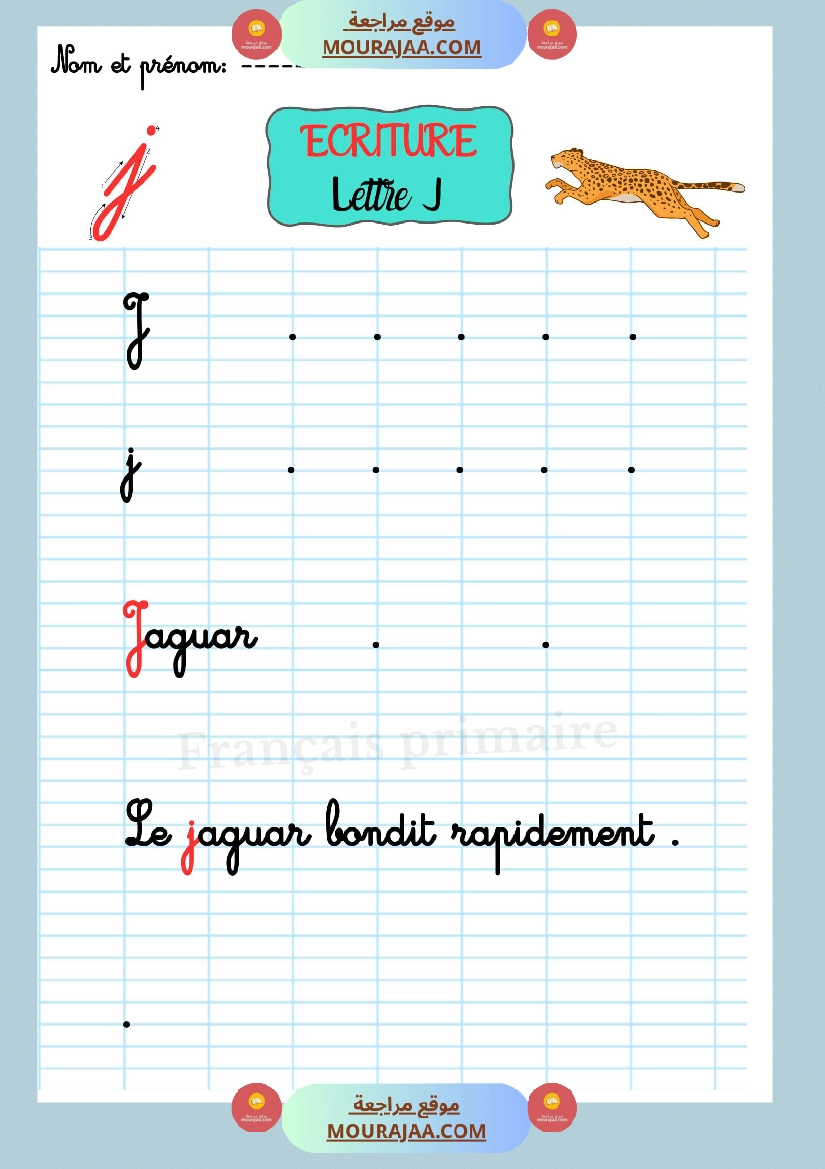 موقع مراجعة
MOURAJAA.COM
Nom et prénom: -----
ECRITURE
Lettre J
J
j
Jaguar
Français primaire
Le jaguar bondit rapidement .
موقع مراجعة
MOURAJAA.COM